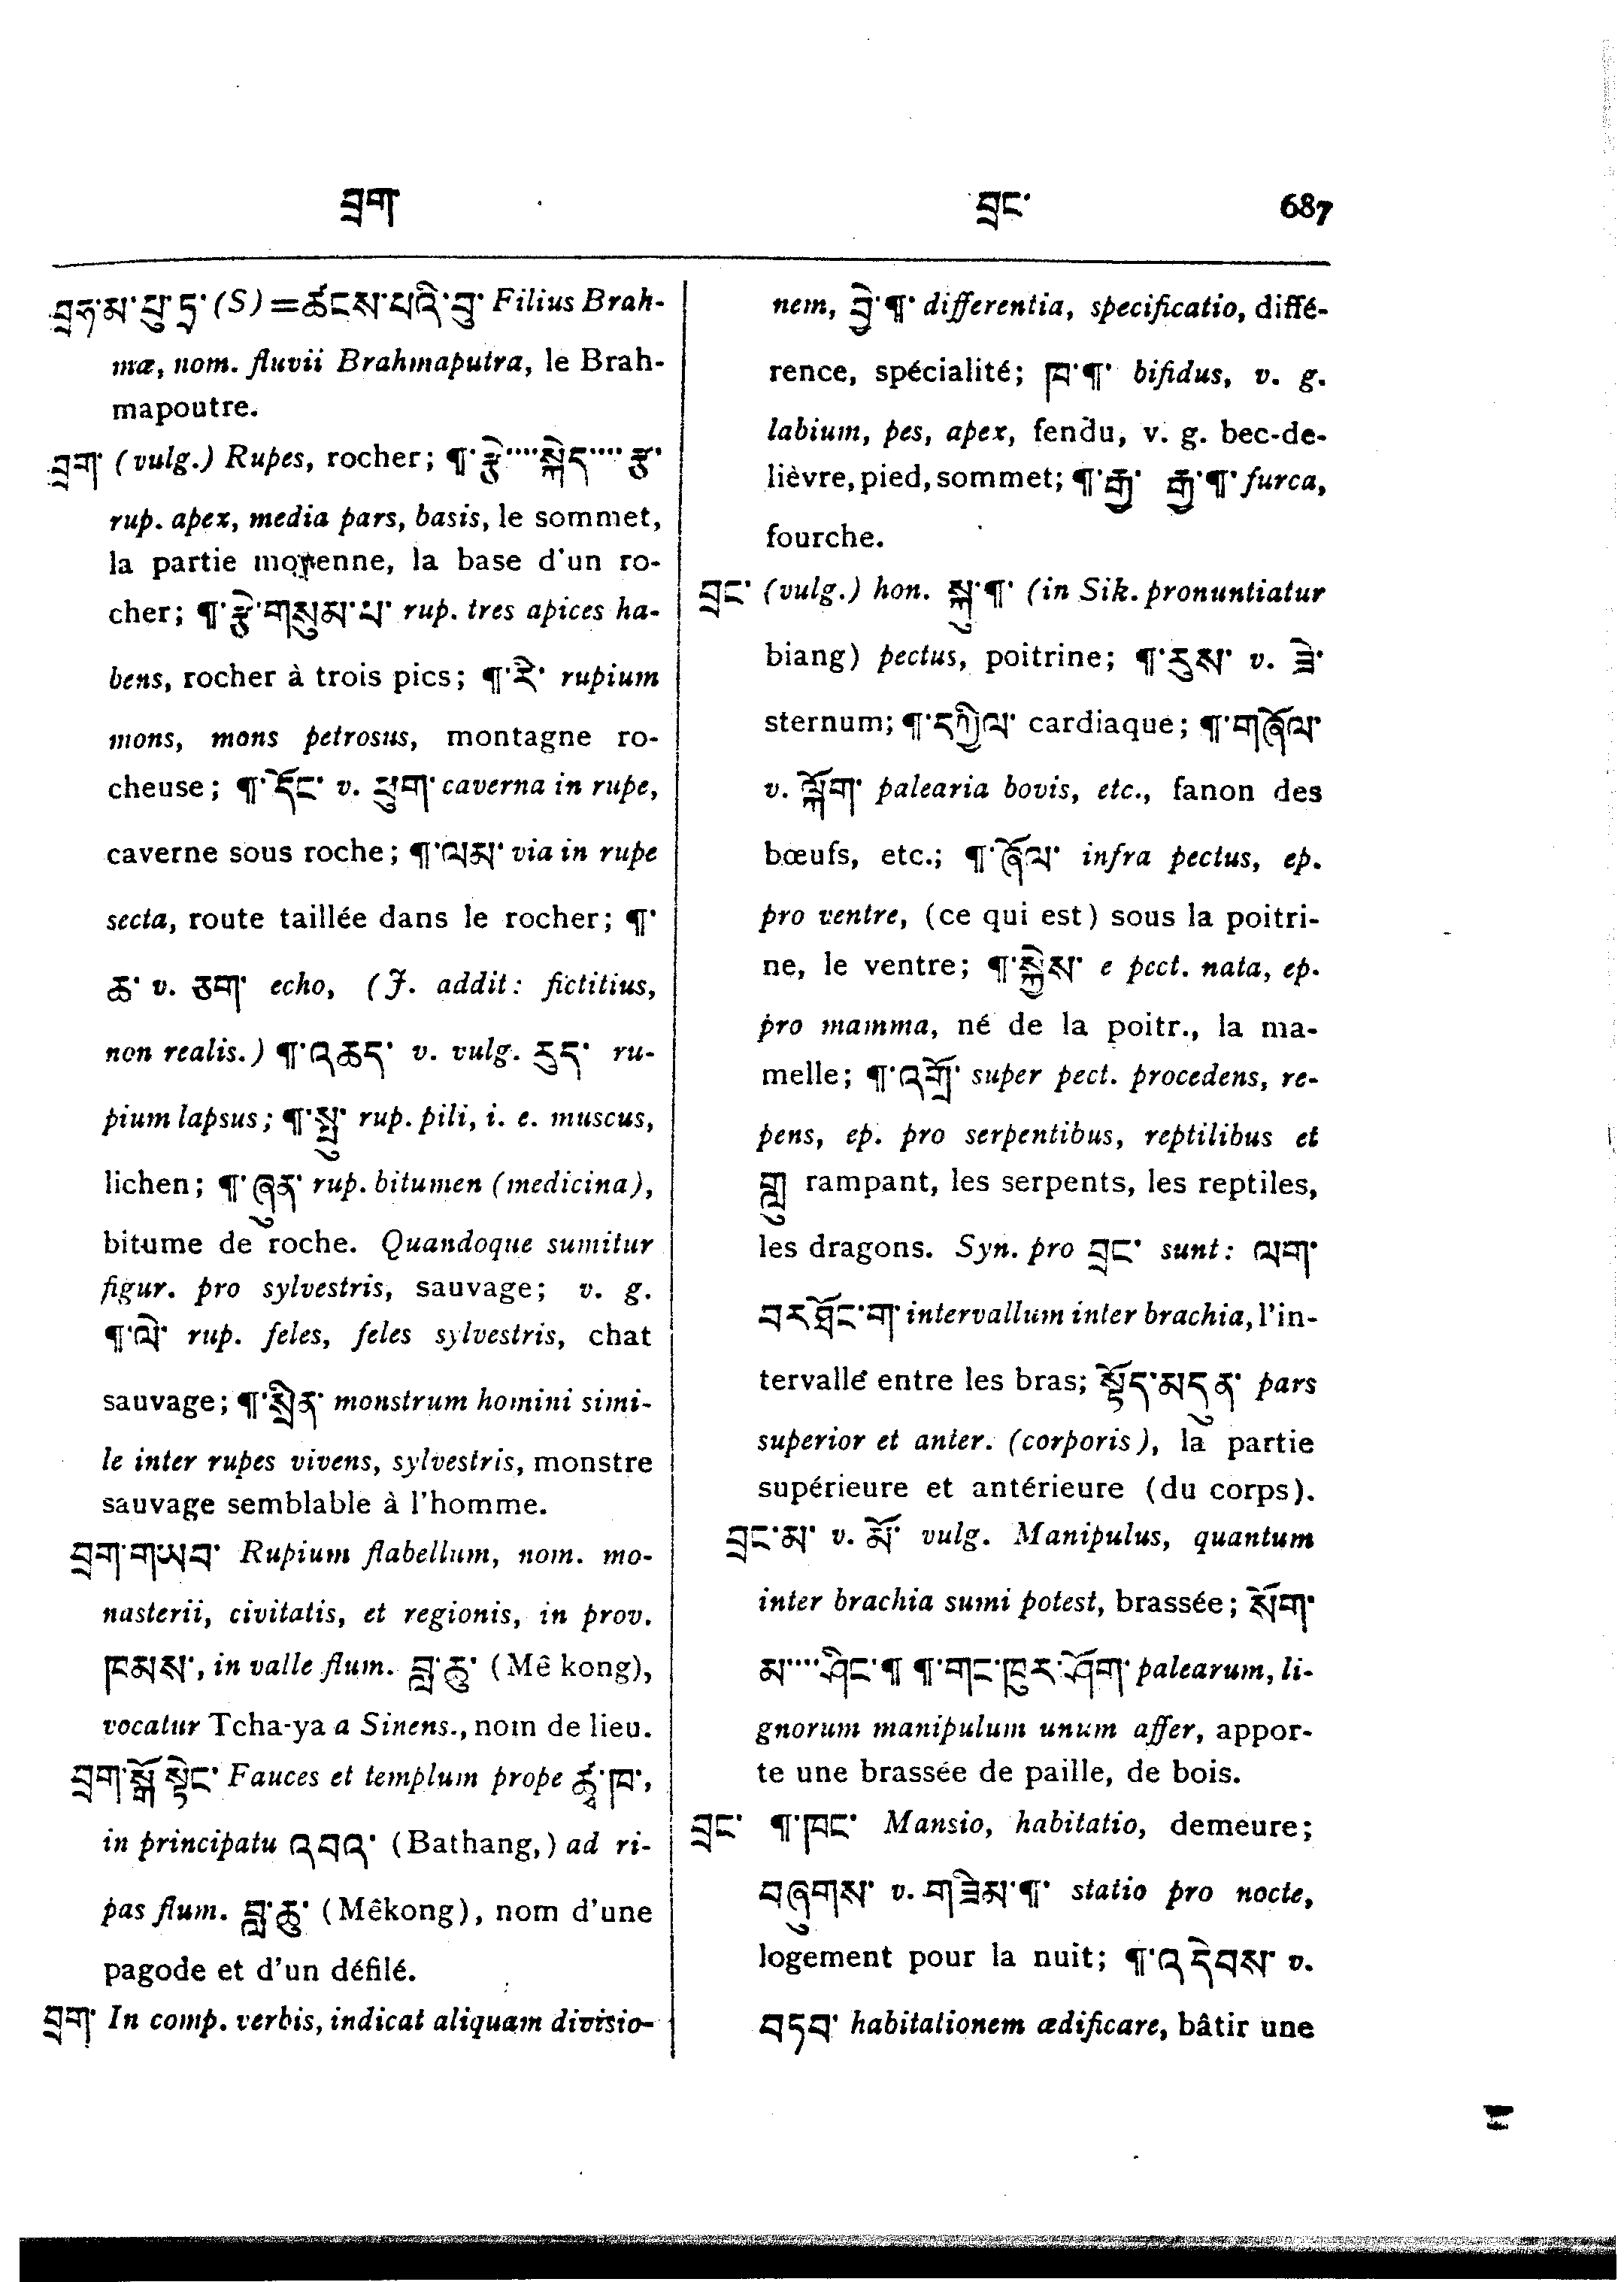 བྲག
བྲང་
687
བྲཧ་མ་པུ་ཏྲ་ (S) = ཚངས་པའི་བུ་ Filius Brah-
mæ, nom. fluvii Brahmaputra, le Brah-
mapoutre.
བྲག་ (vulg.) Rupes, rocher; ¶་རྩེ་....སྐེད་....རྩ་
rup. apex, media pars, basis, le sommet,
la partie moyenne, la base d'un ro-
cher; ¶་རྩེ་གསུམ་པ་ rup. tres apices ha-
bens, rocher à trois pics; ¶་རི་ rupium
mons, mons petrosus, montagne ro-
cheuse; ¶་དོང་ v. ཕུག་ caverna in rupe,
caverne sous roche; ¶་ལམ་ via in rupe
secta, route taillée dans le rocher; ¶་
ཆ་ v. ཅག་ echo, (J. addit: fictitius,
non realis.) ¶་འཆད་ v. vulg. རུད་ ru-
pium lapsus; ¶་སྤུ་ rup. pili, i. e. muscus,
lichen; ¶་ཞུན་ rup. bitumen (medicina),
bitume de roche. Quandoque sumitur
figur. pro sylvestris, sauvage; v. g.
¶་ལེ་ rup. feles, feles sylvestris, chat
sauvage; ¶་སྲིན་ monstrum homini simi-
le inter rupes vivens, sylvestris, monstre
sauvage semblable à l'homme.
བྲག་གཡབ་ Rupium flabellum, nom. mo-
nasterii, civitatis, et regionis, in prov.
ཁམས་, in valle flum. ཟླ་ཆུ་ (Mê kong),
vocatur Tcha-ya a Sinens., nom de lieu.
བྲག་སྒོ་སྟེང་ Fauces et templum prope ཚྭ་ཁ་,
in principatu འབའ་ (Bathang,) ad ri-
pas flum. ཟླ་ཆུ་ (Mêkong), nom d'une
pagode et d'un défilé.
བྲག་ In comp. verbis, indicat aliquam divisio-
nem, བྱེ་¶་ differentia, specificatio, diffé-
rence, spécialité; ཁ་¶་ bifidus, v. g.
labium, pes, apex, fendu, v. g. bec-de-
lièvre, pied, sommet; ¶་རྒྱ་ རྒྱ་¶་ furca,
fourche.
བྲང་ (vulg.) hon. སྐུ་¶་ (in Sik. pronuntiatur
biang) pectus, poitrine; ¶་རུས་ v. ཟེ་
sternum; ¶་དཀྱིལ་ cardiaque; ¶་གཞོལ་
v. ལྐོག་ palearia bovis, etc., fanon des
bœufs, etc.; ¶་ཞོལ་ infra pectus, ep.
pro ventre, (ce qui est) sous la poitri-
ne, le ventre; ¶་སྐྱེས་ e pect. nata, ep.
pro mamma, né de la poitr., la ma-
melle; ¶་འགྲོ་ super pect. procedens, re-
pens, ep. pro serpentibus, reptilibus et
ཀླུ rampant, les serpents, les reptiles,
les dragons. Syn. pro བྲང་ sunt: ལག་
བར་ཐོང་ག་ intervallum inter brachia, l'in-
tervalle entre les bras; སྟོད་མདུན་ pars
superior et anter. (corporis), la partie
supérieure et antérieure (du corps).
བྲང་མ་ v. མོ་ vulg. Manipulus, quantum
inter brachia sumi potest, brassée; སོག་
མ་....ཤིང་¶ ¶་གང་ཁུར་ཤོག་ palearum, li-
gnorum manipulum unum affer, appor-
te une brassée de paille, de bois.
བྲང་ ¶་ཁང་ Mansio, habitatio, demeure;
བཞུགས་ v. གཟིམ་¶་ statio pro nocte,
logement pour la nuit; ¶་འདེབས་ v.
བཏབ་ habitationem ædificare, bâtir une